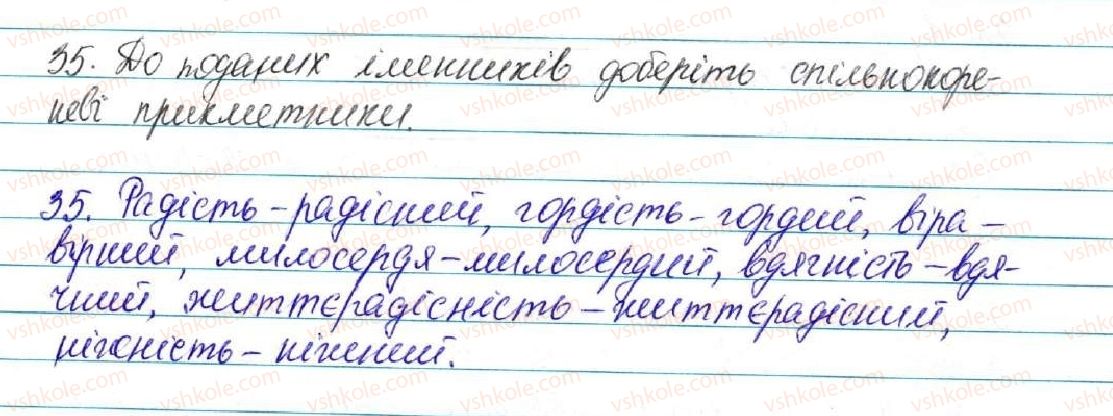 35. До поданих іменників доберіть спільнокоре-
неві прикметники.
35. Радість - радісний, гордість - гордий, віра -
вірний, милосердя - милосердний, вдячність - вдя-
чний, життєрадісність - життєрадісний,
ніжність - ніжний.